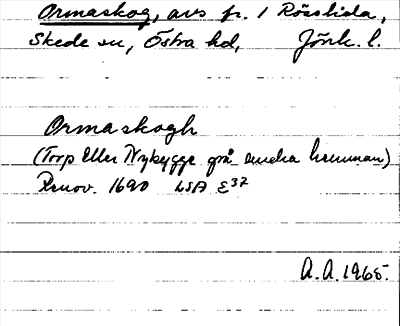 Ormaskog, avs fr. 1 Rösslida,
Skede sn, Östra hd, Jönk. l.
Ormaskogh
(Torp Eller Nybygge på samma hemman)
Renov. 1690 LSA E37
A.A. 1965.